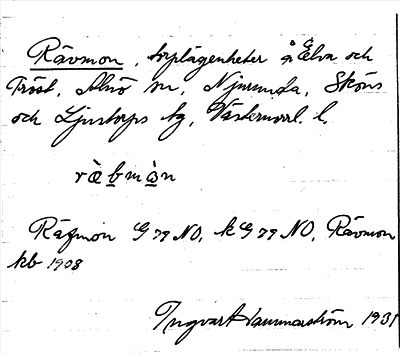 Rävmon, torplägenheter å Elva och
Tröst, Alnö sn, Njurunda, Sköns
och Ljustorps tg, Västernorrl. l.
ræ̀b̲mò̲n
Räfmon G 79 NO, k G 79 NO, Rävmon
kb 1908
Ingvar Hammarström 1931